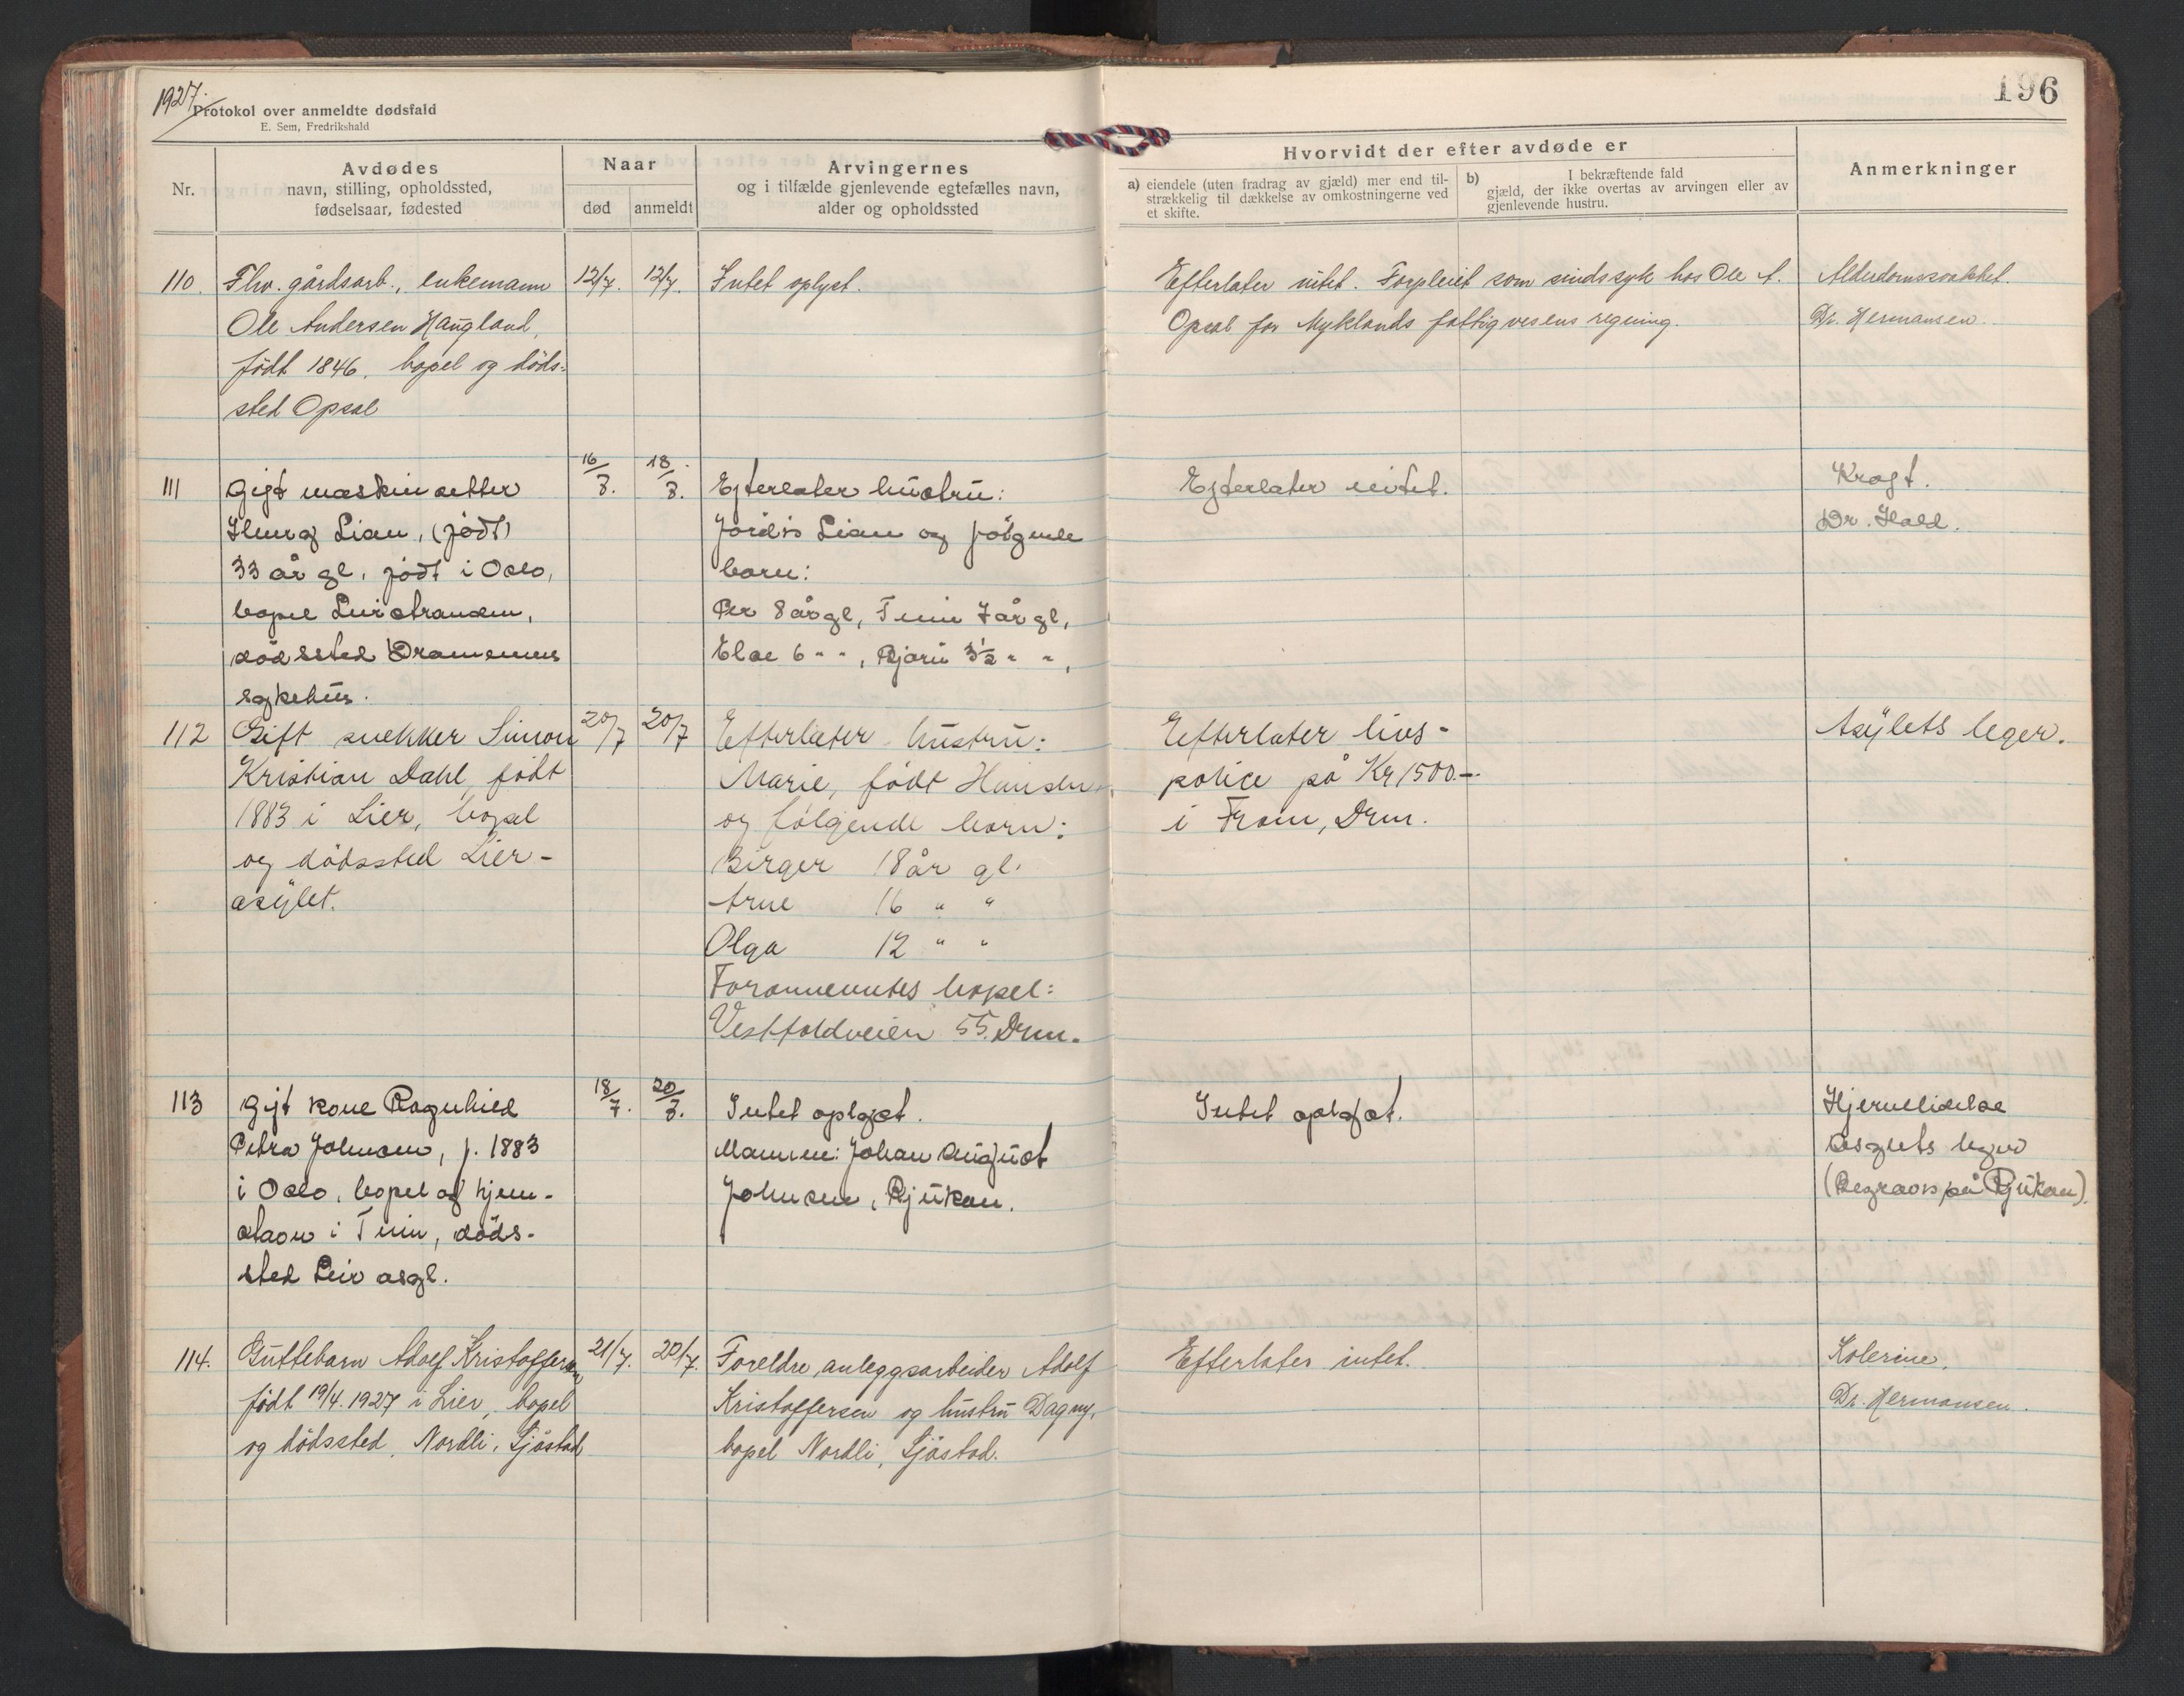 1927.
Protokol over anmeldte dødsfald
E. Sem, Fredrikshald
196
Nr.
Avdødes
navn, stilling, opholdssted,
fødselsaar, fødested
Naar
død
anmeldt
Arvingernes
og i tilfælde gjenlevende egtefælles navn,
alder og opholdssted
Hvorvidt der efter avdøde er
a) eiendele (uten fradrag av gjæld) mer end til-
strækkelig til dækkelse av omkostningerne ved
et skifte.
b) I bekræftende fald
gjæld, der ikke overtas av arvingen eller av
gjenlevende hustru.
Anmerkninger
110.
Fhv. gårdsarb., enkemann
Ole Andersen Haugland,
født 1846. bopel og døds-
sted Opsal
12/7.
12/7.
Intet oplyst.
Efterlater intet. Forpleiet som sindssyk hos Ole A.
Opsal for Myklands fattigvesens regning.
Alderdomssvakhet.
Dr. Hermansen.
111
Gift maskinsetter
Lian, (født)
33 år gl. født i Oslo,
bopel Lierstranden,
dødssted Drammens
sykehus.
16/7.
18/7.
Efterlater hustru:
Jordis Lian og følgende
barn:
Per 8 år gl, Finn 7 år gl,
Else 6 " ", Bjørn 3½ " ",
Efterlater intet.
Kreft.
Dr. Hald.
112
Gift snekker Simon
Kristian Dahl, født
1883 i Lier, bopel
og dødssted Lier-
asylet.
20/7
20/7
Efterlater hustru:
Marie, født Hansen
og følgende barn:
Birger 18 år gl.
Arne 16 " "
Olga 12 " "
Forannevntes bopel:
Vestfoldveien 55. Drm.
Efterlater livs-
police på Kr 1500.-
i Fram, Drm.
Asylets leger.
113
Gift kone Ragnhild
Petra Johnsen, f. 1883
i Oslo, bopel og hjem-
stavn i Tinn, døds-
sted Lier asyl.
18/7.
20/7.
Intet oplyst.
Mannen: Johan August
Johnsen, Rjukan.
Intet oplyst.
Hjernelidelse
Asylets leger
(Begraves på Rjukan).
114.
Guttebarn Adolf Kristoffersen,
født 19/4. 1927 i Lier, bopel
og dødssted Nordli, Sjåstad
21/7.
22/7.
Foreldre, anleggsarbeider Adolf
Kristoffersen og hustru Dagny,
bopel Nordli, Sjåstad.
Efterlater intet.
Kolerine.
Dr. Hermansen.